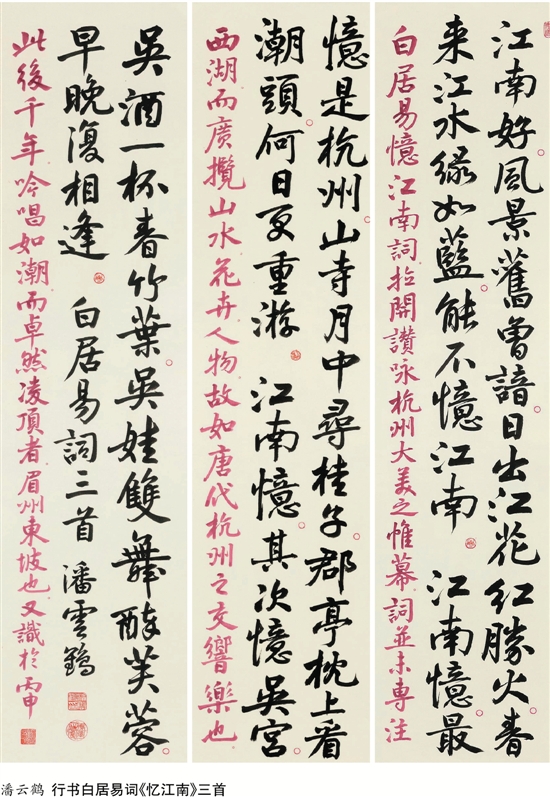 江南好風景舊曾諳日出江花紅勝火春
来江水緑如藍能不憶江南 江南憶最
白居易憶江南詞拉開讚咏杭州大美之惟幕詞並未專注
憶是杭州山寺月中尋桂子郡亭枕上看
潮頭何日更重游 江南憶其次憶吳宮
西湖而廣攬山水花卉人物故如唐代杭州之交響樂也
吳酒一杯春竹葉吳娃雙舞醉芙蓉
早晚復相逢 白居易詞三首 潘雲鶴
此後千年吟唱如潮而卓然凌頂者眉州東坡也又識於丙申
潘云鹤 行书白居易词《忆江南》三首